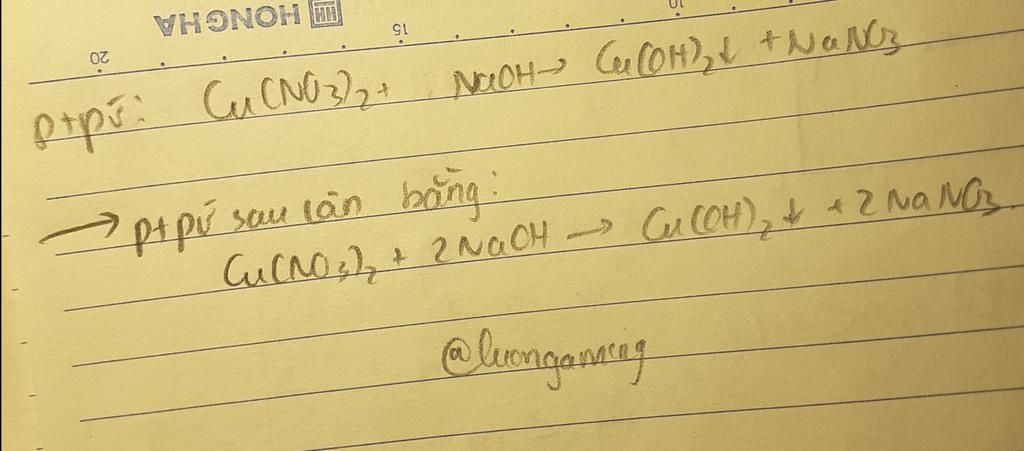 HONGHA
20 15 10
ptpứ: Cu(NO3)2 + NaOH → Cu(OH)2↓ + NaNO3
→ ptpứ sau cân bằng:
Cu(NO3)2 + 2NaOH → Cu(OH)2↓ + 2NaNO3